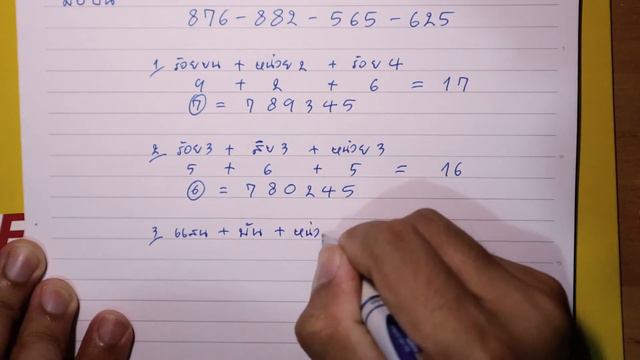 876 - 882 - 565 - 625
1 ร้อยบน + หน่วย 2 + ร้อย 4
9 + 2 + 6 = 17
7 = 789345
2 ร้อย 3 + สิบ 3 + หน่วย 3
5 + 6 + 5 = 16
6 = 780245
3 แสน + พัน +